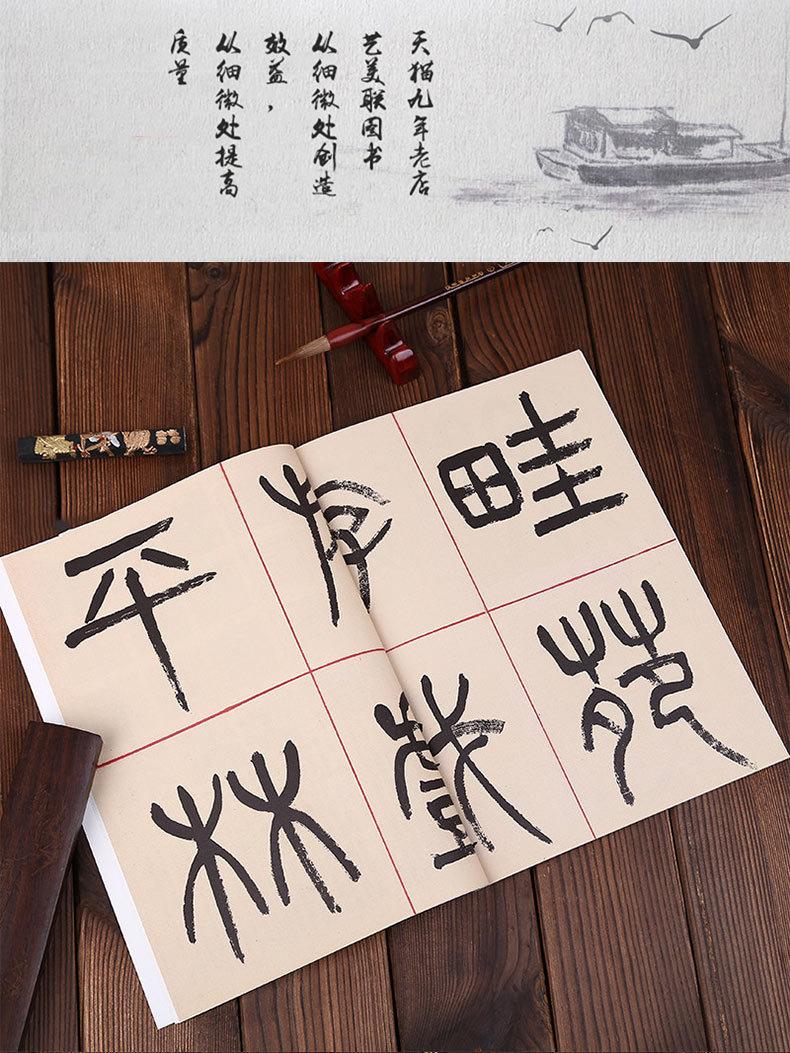 天猫九年老店
艺美联图书
从细微处创造
效益，
从细微处提高
质量
畦苑
有
平林